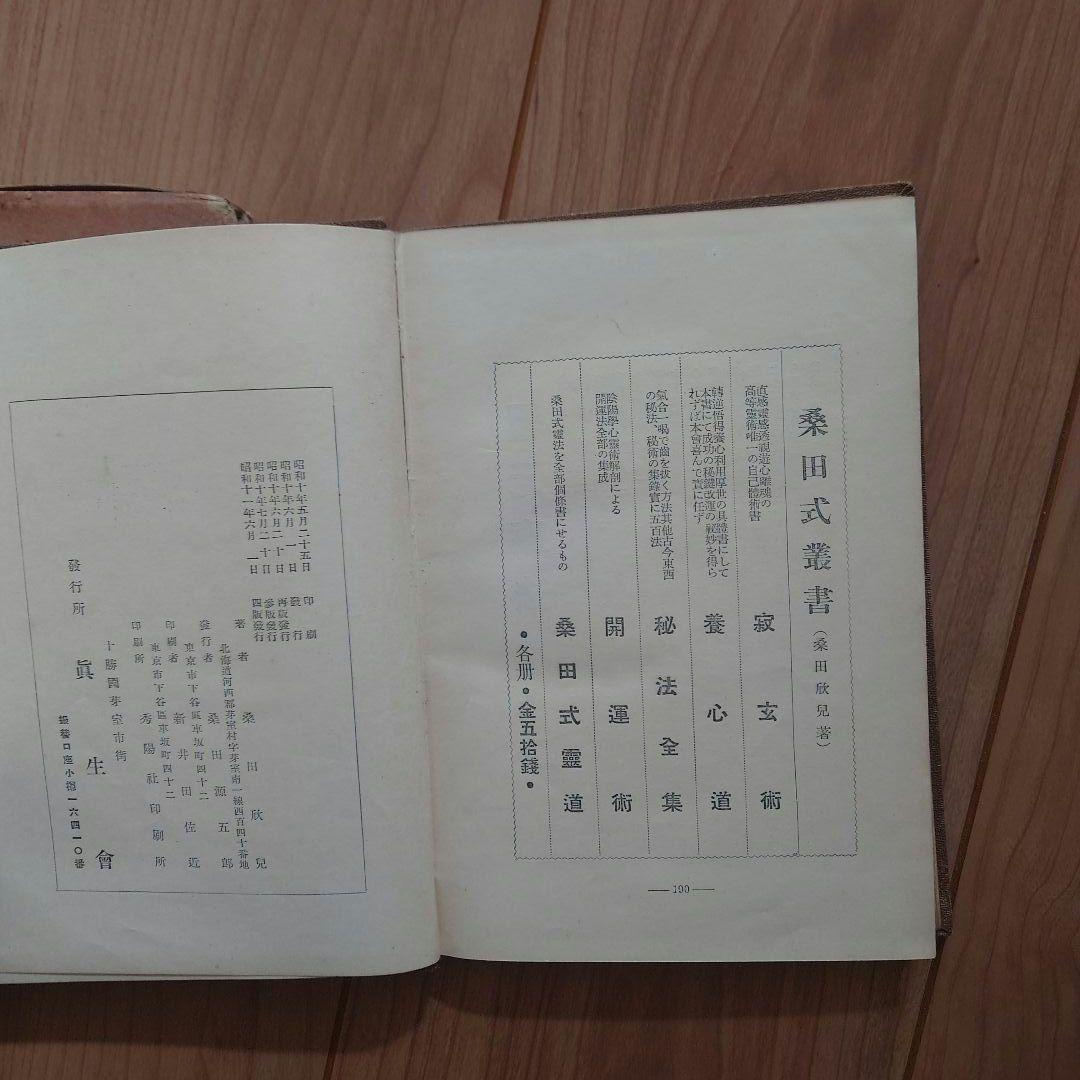 桑田式叢書(桑田欣兒著)
直感靈感透視遊心離魂の
高等靈術唯一の自己體術書
寂玄術
轉迷悟得養心利用厚世の具體書にして
本書にて成功の秘鍵改運の秘妙を得ら
れずば本會喜んで責に任ず
養心道
氣合一喝で齒を拔く方法其他古今東西
の秘法、秘術の集錄實に五百法
秘法全集
陰陽學心靈術解剖による
開運法全部の集成
開運術
桑田式靈法を全部個條書にせるもの
桑田式靈道
•各册•金五拾錢•
— 190 —
昭和十年五月二十五日 印刷
昭和十年六月一日 發行
昭和十年六月二十日 再版發行
昭和十年七月二十日 參版發行
昭和十一年六月一日 四版發行
著者 桑田欣兒
北海道河西郡芽室村字芽室南一線西百四十番地
發行者 桑田源五郎
東京市下谷區車坂町四十二
印刷者 新井田佐近
東京市下谷區車坂町四十二
印刷所 秀陽社印刷所
十勝國芽室市街
發行所 眞生會
振替口座小樽一六四一〇番